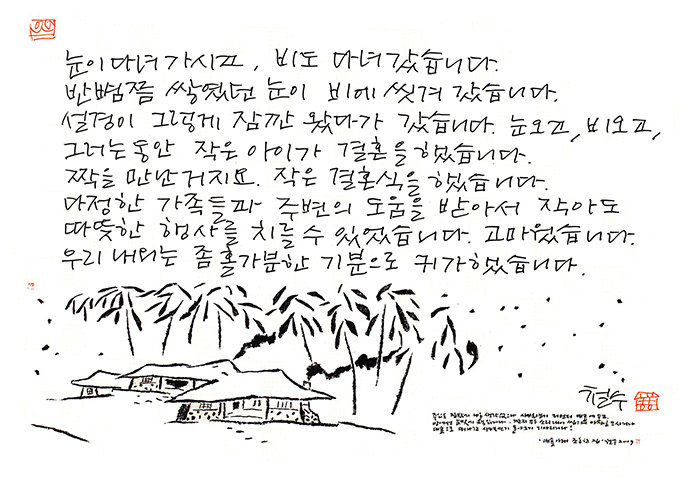 눈이 다녀 가시고, 비도 다녀 갔습니다.
반뼘쯤 쌓였던 눈이 비에 씻겨 갔습니다.
설경이 그렇게 잠깐 왔다가 갔습니다. 눈오고, 비오고,
그러는 동안 작은 아이가 결혼을 했습니다.
짝을 만난거지요. 작은 결혼식을 했습니다.
다정한 가족들과 주변의 도움을 받아서 작아도
따뜻한 행사를 치를 수 있었습니다. 고마웠습니다.
우리 내외는 좀 홀가분한 기분으로 귀가했습니다.
철수